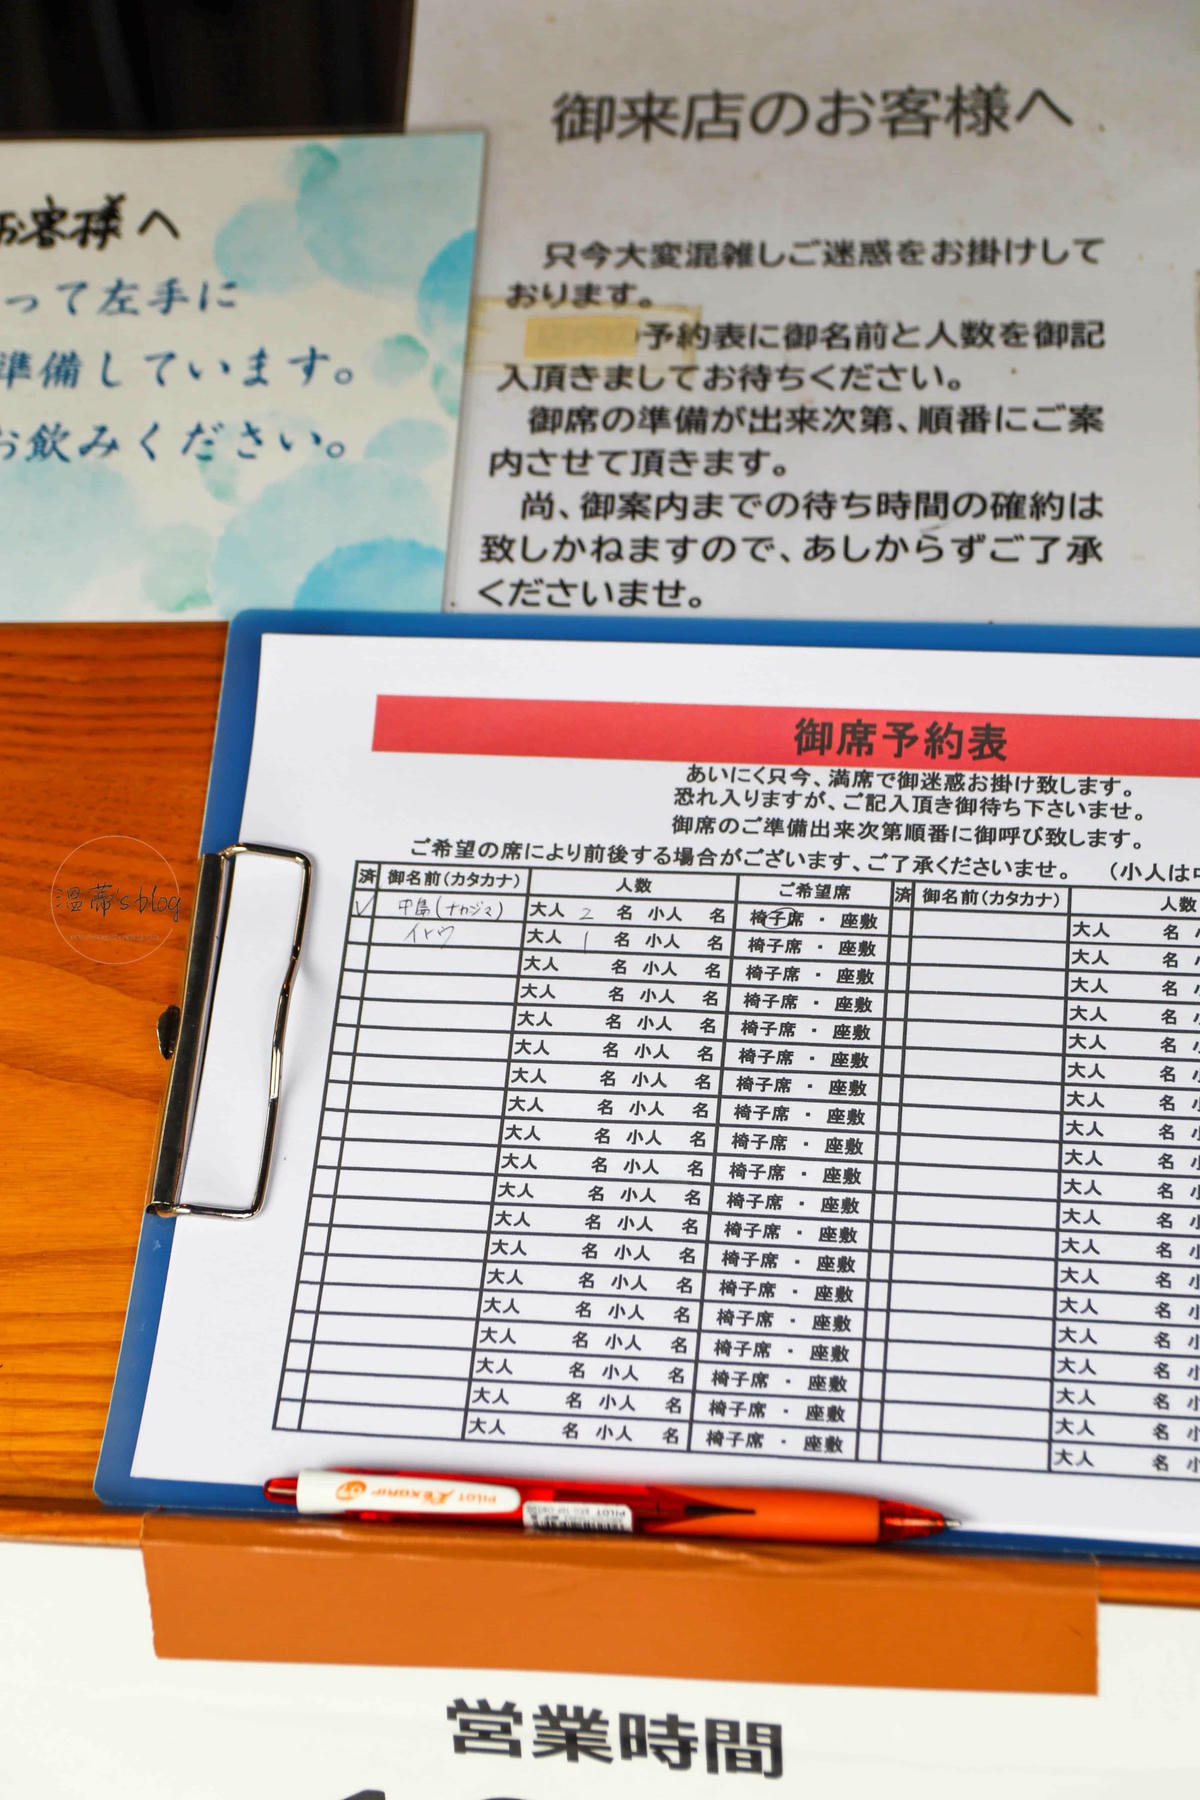 御来店のお客様へ
只今大変混雑しご迷惑をお掛けして
おります。
予約表に御名前と人数を御記
入頂きましてお待ちください。
御席の準備が出来次第、順番にご案
内させて頂きます。
尚、御案内までの待ち時間の確約は
致しかねますので、あしからずご了承
くださいませ。
お客様へ
って左手に
準備しています。
お飲みください。
御席予約表
あいにく只今、満席で御迷惑お掛け致します。
恐れ入りますが、ご記入頂き御待ち下さいませ。
御席のご準備出来次第順番に御呼び致します。
ご希望の席により前後する場合がございます、ご了承くださいませ。 (小人は
済 御名前(カタカナ) 人数 ご希望席 済 御名前(カタカナ) 人数
✓ 中島(ナカジマ) 大人 2 名 小人 名 椅子席 ・ 座敷 大人 名 小
イトウ 大人 1 名 小人 名 椅子席 ・ 座敷 大人 名 小
大人 名 小人 名 椅子席 ・ 座敷 大人 名 小
大人 名 小人 名 椅子席 ・ 座敷 大人 名 小
大人 名 小人 名 椅子席 ・ 座敷 大人 名 小
大人 名 小人 名 椅子席 ・ 座敷 大人 名 小
大人 名 小人 名 椅子席 ・ 座敷 大人 名 小
大人 名 小人 名 椅子席 ・ 座敷 大人 名 小
大人 名 小人 名 椅子席 ・ 座敷 大人 名 小
大人 名 小人 名 椅子席 ・ 座敷 大人 名 小
大人 名 小人 名 椅子席 ・ 座敷 大人 名 小
大人 名 小人 名 椅子席 ・ 座敷 大人 名 小
大人 名 小人 名 椅子席 ・ 座敷 大人 名 小
大人 名 小人 名 椅子席 ・ 座敷 大人 名 小
大人 名 小人 名 椅子席 ・ 座敷 大人 名 小
大人 名 小人 名 椅子席 ・ 座敷 大人 名 小
大人 名 小人 名 椅子席 ・ 座敷 大人 名 小
大人 名 小人 名 椅子席 ・ 座敷 大人 名 小
大人 名 小人 名 椅子席 ・ 座敷 大人 名 小
溫蒂's blog
PILOT REXGRIP 07
営業時間